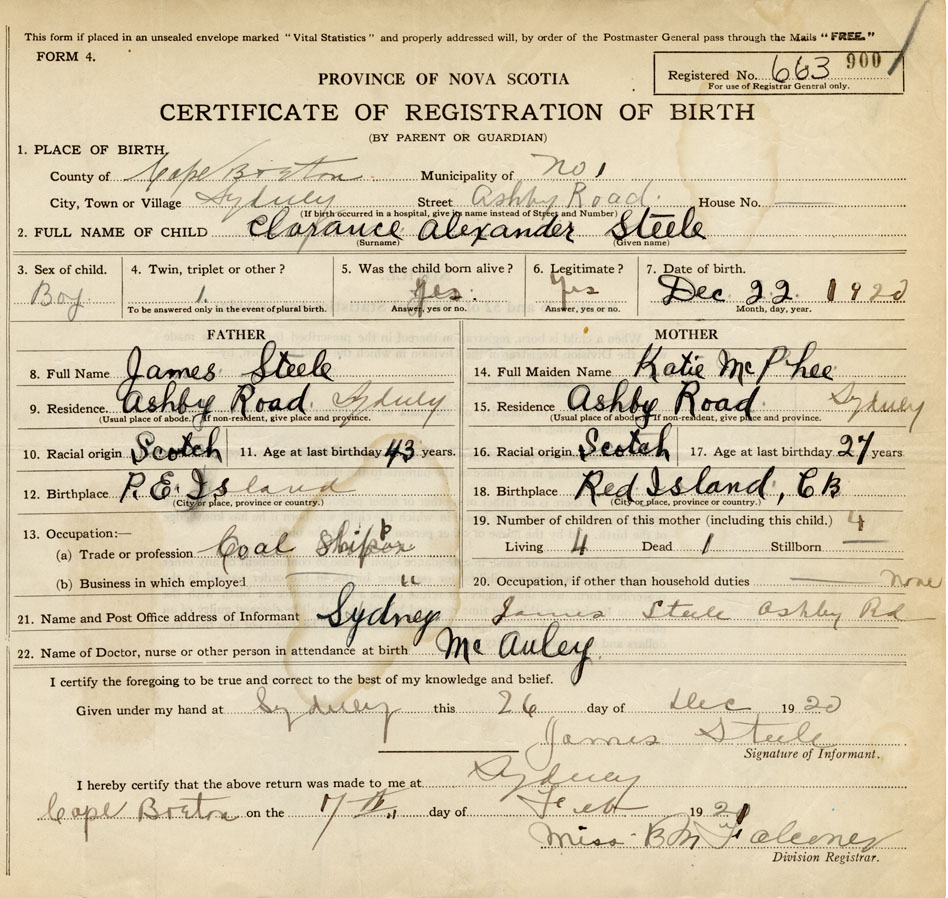 This form if placed in an unsealed envelope marked "Vital Statistics" and properly addressed will, by order of the Postmaster General pass through the Mails "FREE."
FORM 4.
Registered No. 663 900
For use of Registrar General only.
PROVINCE OF NOVA SCOTIA
CERTIFICATE OF REGISTRATION OF BIRTH
(BY PARENT OR GUARDIAN)
1. PLACE OF BIRTH.
County of Cape Breton Municipality of No 1
City, Town or Village Sydney Street Ashby Road House No. —
(If birth occurred in a hospital, give its name instead of Street and Number)
2. FULL NAME OF CHILD Clarance Alexander Steele
(Surname) (Given name)
3. Sex of child. 4. Twin, triplet or other? 5. Was the child born alive? 6. Legitimate? 7. Date of birth.
Boy 1. Yes. Yes Dec 22 1920
To be answered only in the event of plural birth. Answer, yes or no. Answer, yes or no. Month, day, year.
FATHER MOTHER
8. Full Name James Steele 14. Full Maiden Name Katie McPhee
9. Residence. Ashby Road Sydney 15. Residence Ashby Road Sydney
(Usual place of abode.) If non-resident, give place and province. (Usual place of abode.) If non-resident, give place and province.
10. Racial origin Scotch 11. Age at last birthday 43 years. 16. Racial origin Scotch 17. Age at last birthday 27 years
12. Birthplace P. E. Island 18. Birthplace Red Island, C B
(City or place, province or country.) (City or place, province or country.)
13. Occupation:— 19. Number of children of this mother (including this child.) 4
(a) Trade or profession Coal Living 4 Dead 1 Stillborn —
(b) Business in which employed — " 20. Occupation, if other than household duties — none
21. Name and Post Office address of Informant Sydney James Steele Ashby Rd
22. Name of Doctor, nurse or other person in attendance at birth Mc Auley
I certify the foregoing to be true and correct to the best of my knowledge and belief.
Given under my hand at Sydney this 26 day of Dec 1920
James Steele
Signature of Informant.
I hereby certify that the above return was made to me at Sydney
Cape Breton on the 7th day of Feb 1921
Miss B M Falconer
Division Registrar.